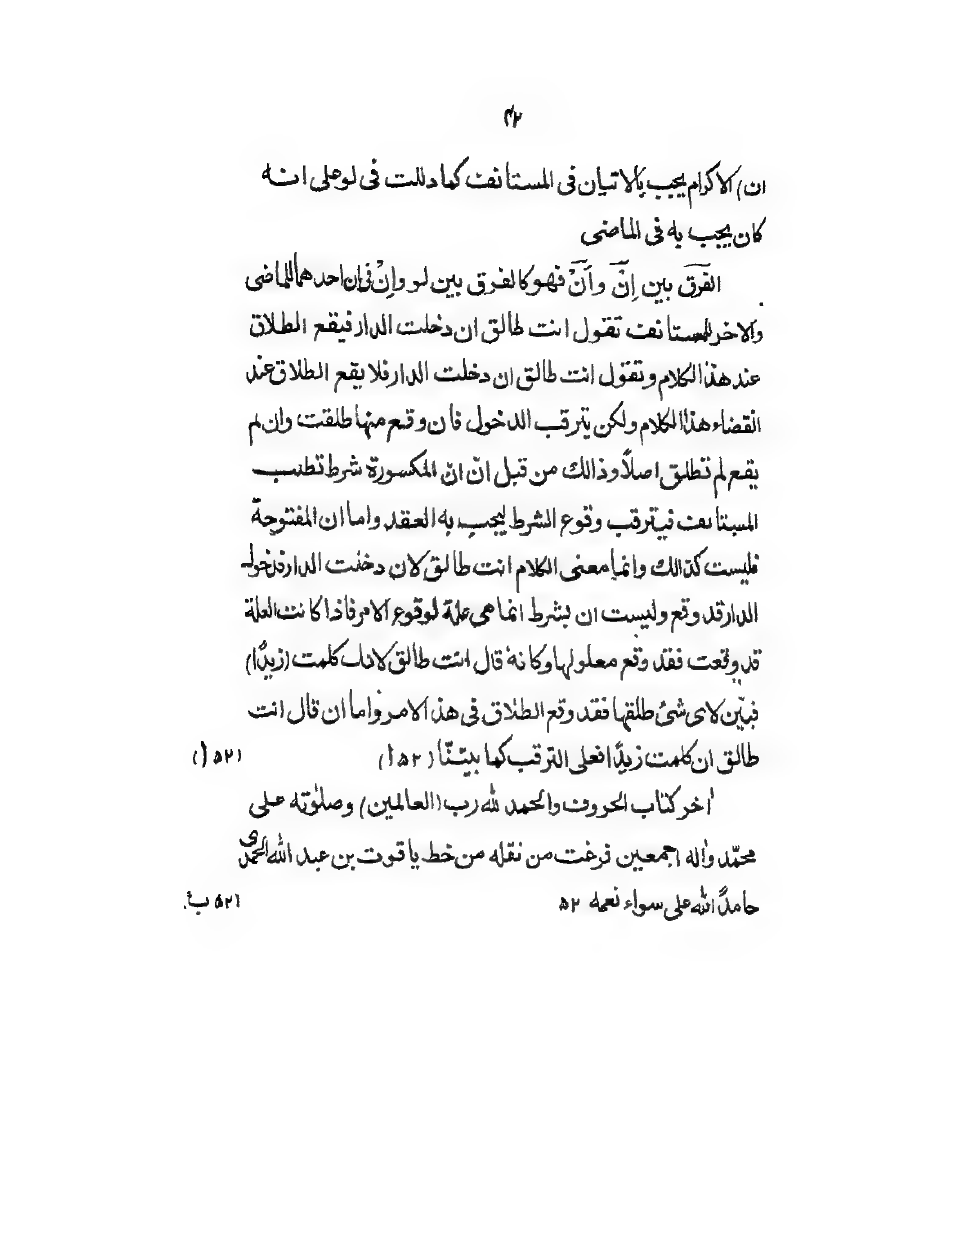 ٤٢
ان) الاكرام يجب بالاتيان فى المستانف كما دللت فى لو على انه
كان يجب به فى الماضى
الفرق بين إنّ وأنّ فهو كالفرق بين لو وإنْ فى ان احدهما للماضى
والاخر للمستانف تقول انت طالق ان دخلت الدار فيقع الطلاق
عند هذا الكلام وتقول انت طالق ان دخلت الدار فلا يقع الطلاق عند
انقضاء هذا الكلام ولكن يترقب الدخول فان وقع منها طلقت وان لم
يقع لم تطلق اصلاً وذالك من قبل انّ ان المكسورة شرط تطلب
المستانف فيترقب وقوع الشرط ليجب به العقد واما ان المفتوحة
فليست كذالك وانما معنى الكلام انت طالق لان دخلت الدار فدخول
الدار قد وقع وليست ان بشرط انما هى علة لوقوع الامر فاذا كانت العلة
قد وقعت فقد وقع معلولها وكانه قال انت طالق لانك كلمت (زيدًا)
فبيّن لاى شئ طلقها فقد وقع الطلاق فى هذ الامر واما ان قال انت
طالق ان كلمت زيدًا فعلى الترقب كما بيّنّا (٥٢ أ) (٥٢ أ)
أخر كتاب الحروف والحمد لله رب (العالمين) وصلوته على
محمّد واله اجمعين فرغت من نقله من خط ياقوت بن عبد الله الحمدى
حامدًا الله على سواء نعمه ٥٢ (٥٢ ب)